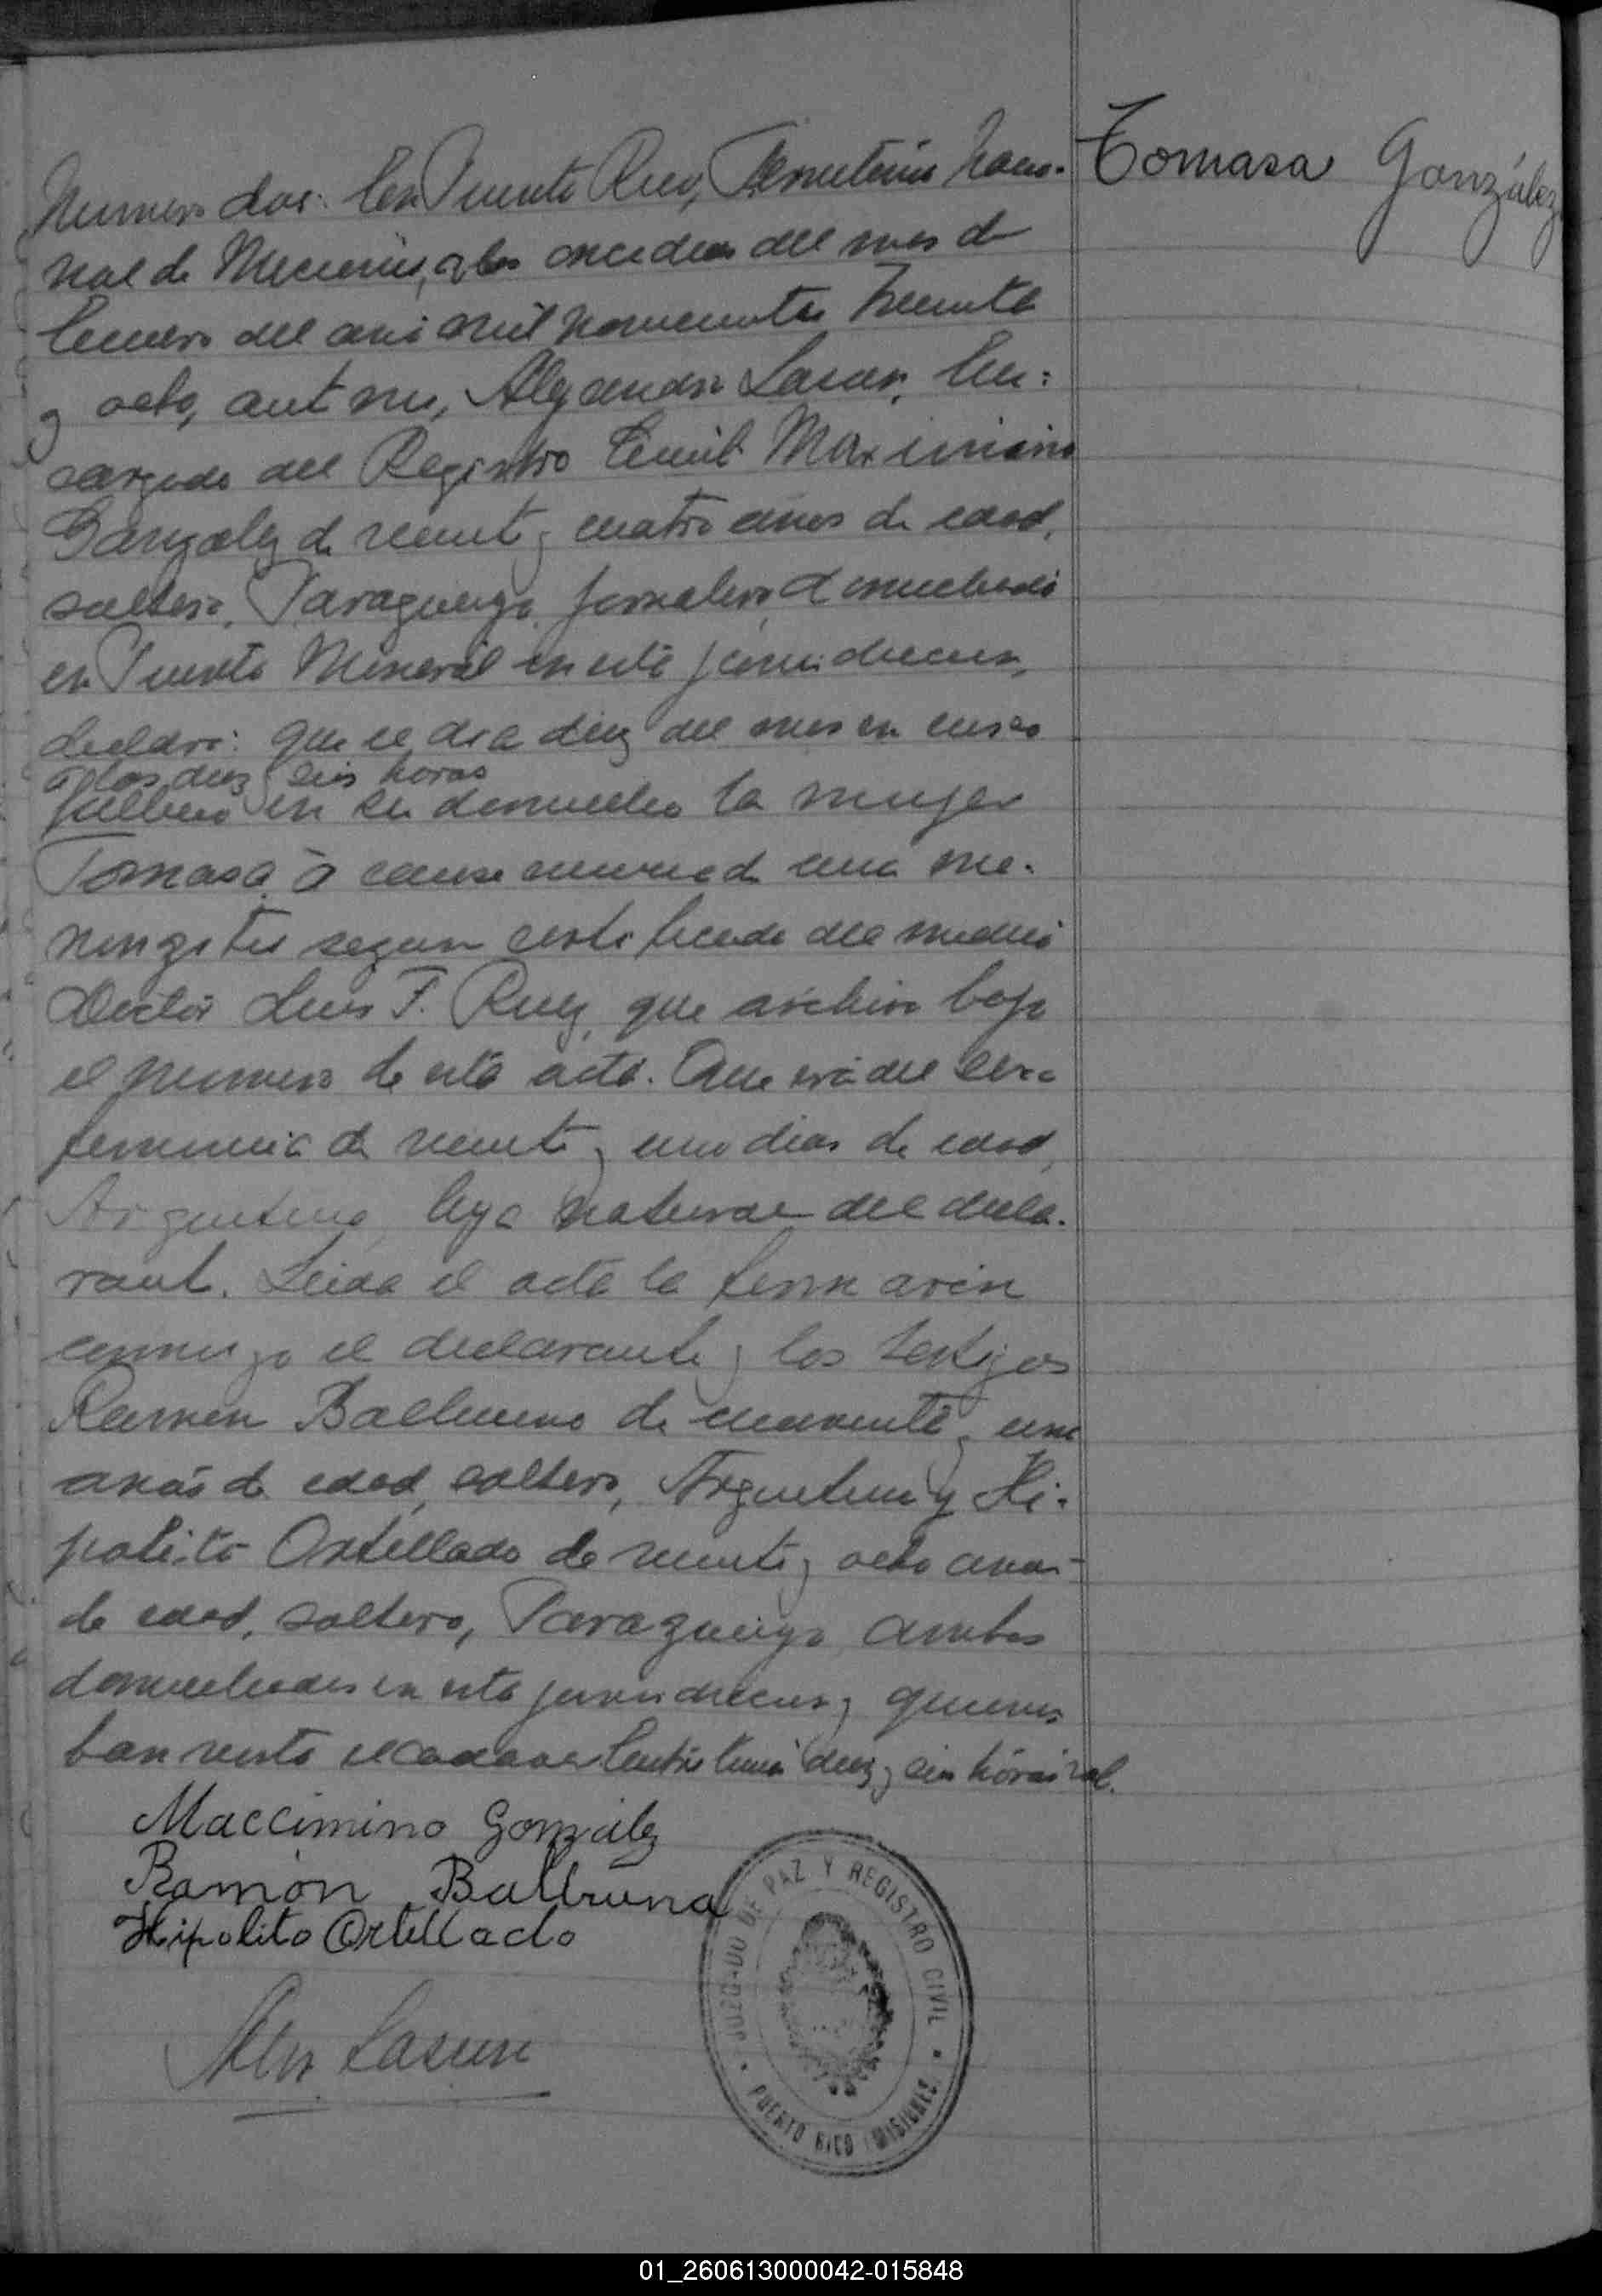 Tomasa González
Numero dos: En Puerto Rico, Territorio Nacio-
nal de Misiones, a los once dias del mes de
Enero del año mil novecientos treinta
y ocho, ante mi, Alejandro Lasan, En-
cargado del Registro Civil Maximino
Gonzalez de veinte y cuatro años de edad,
soltero, Paraguayo, jornalero, domiciliado
en Puerto Mineral en esta jurisdiccion,
declaró: que el dia diez del mes en curso
a las diez y seis horas
fallecio en su domicilio la mujer
Tomasa, a consecuencia de una me-
ningitis segun certificado del medico
Doctor Luis F. Ruiz, que archivo bajo
el numero de esta acta. Que era del sexo
femenino de veinte y uno dias de edad,
Argentina, hija natural del decla-
rante. Leida el acta la firmaron
conmigo el declarante y los testigos
Ramon Balbuena de cuarenta y uno
años de edad, soltero, Argentino y Hi-
polito Ortellado de veinte y ocho años
de edad, soltero, Paraguayo, ambos
domiciliados en esta jurisdiccion y quienes
han visto el cadaver Entre linea diez y seis horas val.
Maccimino González
Ramón Balbuena
Hipolito Ortellado
JUZGADO DE PAZ Y REGISTRO CIVIL
PUERTO RICO (MISIONES)
01_260613000042-015848